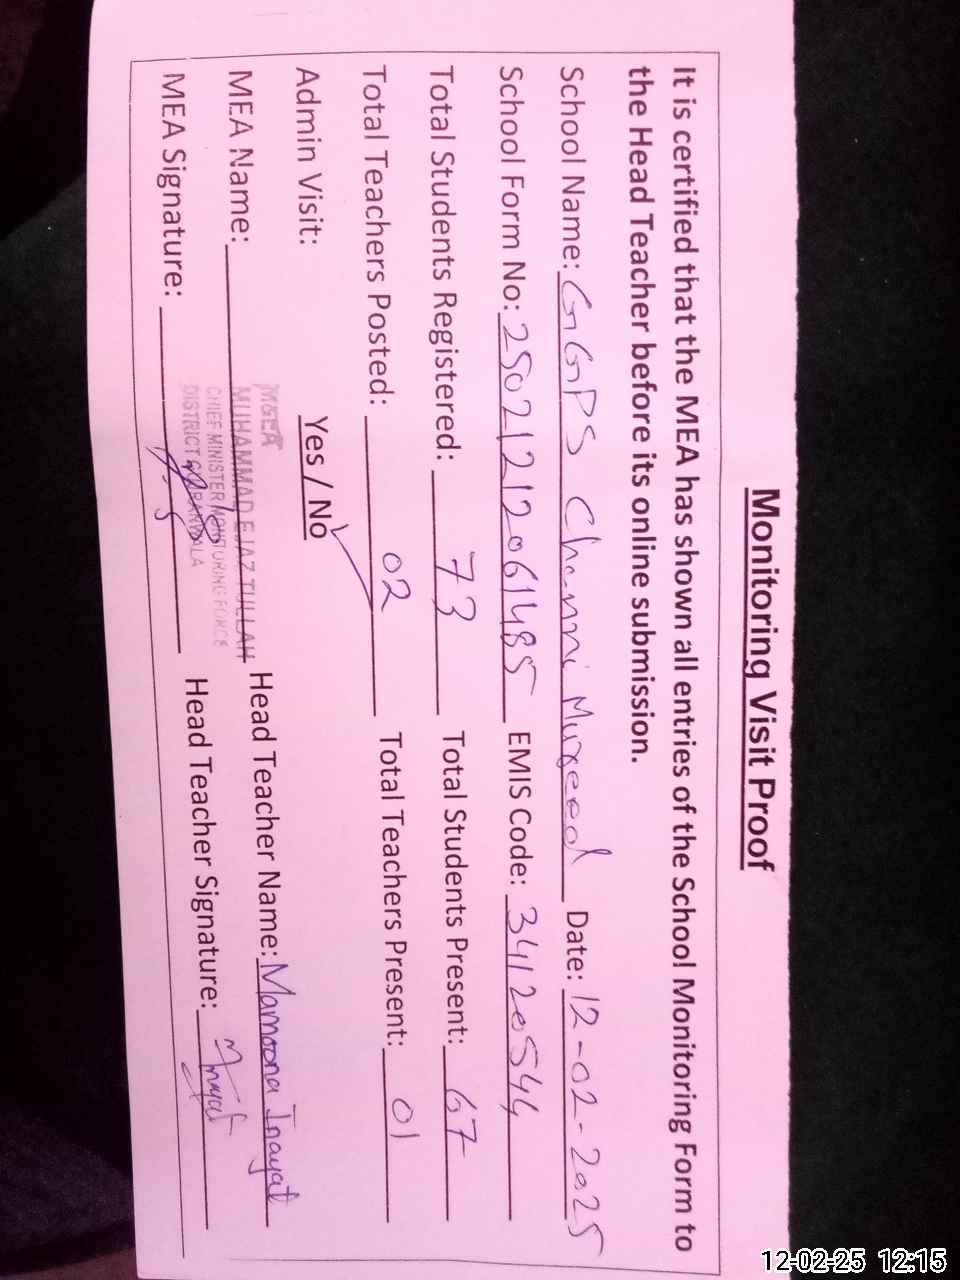 Monitoring Visit Proof
It is certified that the MEA has shown all entries of the School Monitoring Form to
the Head Teacher before its online submission.
School Name: GGPS Channi Mureed Date: 12-02-2025
School Form No: 25021212061485 EMIS Code: 34120544
Total Students Registered: 73 Total Students Present: 67
Total Teachers Posted: 02 Total Teachers Present: 01
Admin Visit: Yes / No ✓
MEA
MEA Name: MUHAMMAD EJAZ TULLAH Head Teacher Name: Mamoona Inayat
CHIEF MINISTER MONITORING FORCE
DISTRICT GUJRANWALA
MEA Signature: Head Teacher Signature: Inayat
12-02-25 12:15